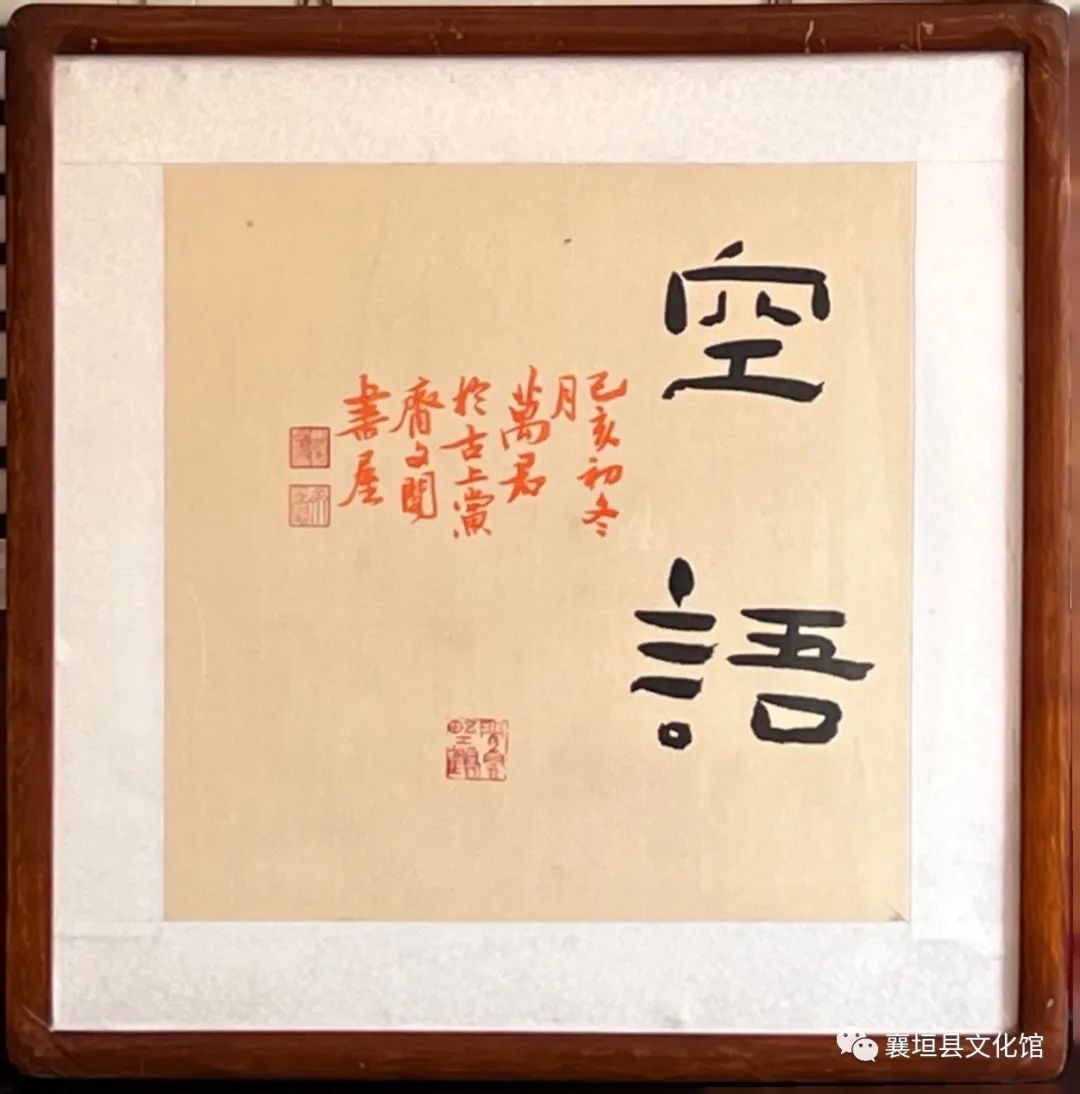 空語
己亥初冬
月
萬君
於古上黨
齋文閣
書屋
襄垣县文化馆